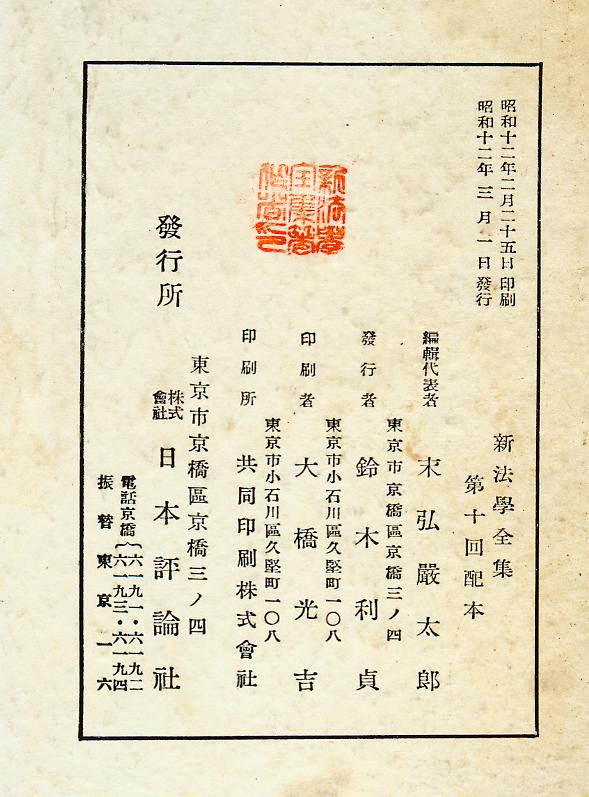 昭和十二年二月二十五日印刷
昭和十二年三月一日發行
新法學全集
第十回配本
編輯代表者 末弘嚴太郎
東京市京橋區京橋三ノ四
發行者 鈴木利貞
東京市小石川區久堅町一〇八
印刷者 大橋光吉
東京市小石川區久堅町一〇八
印刷所 共同印刷株式會社
東京市京橋區京橋三ノ四
發行所 株式會社 日本評論社
電話京橋{六一九一・六一九二
六一九三・六一九四
振替東京一六